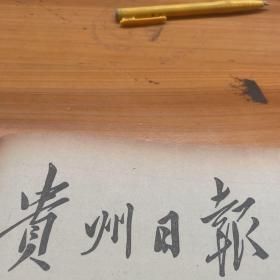 貴州日報